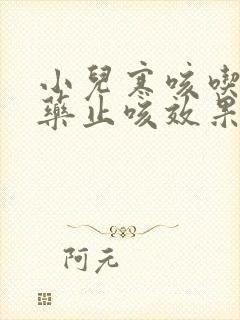 小兒寒咳喫
藥止咳效果
阿元